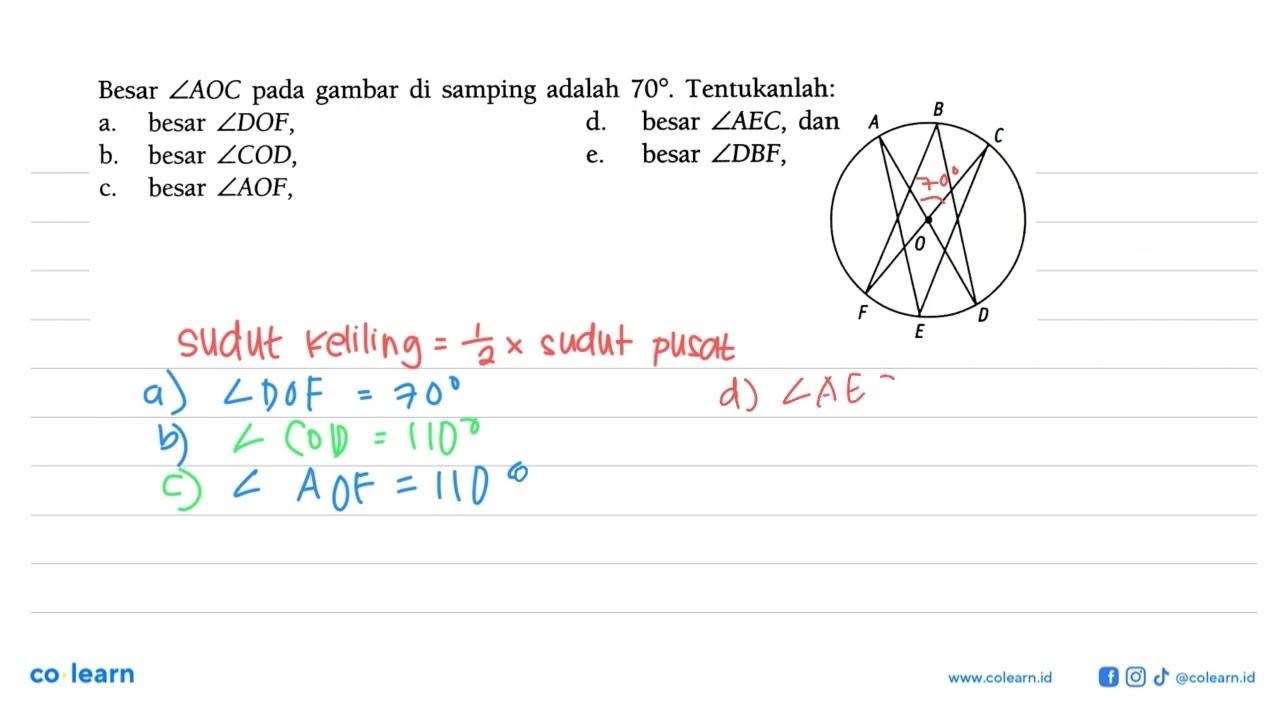 Besar ∠AOC pada gambar di samping adalah 70°. Tentukanlah:
a. besar ∠DOF,
b. besar ∠COD,
c. besar ∠AOF,
d. besar ∠AEC, dan
e. besar ∠DBF,
A
B
C
70°
O
F
E
D
sudut keliling = 1/2 × sudut pusat
a) ∠DOF = 70°
b) ∠COD = 110°
c) ∠AOF = 110°
d) ∠AE
co·learn
www.colearn.id
@colearn.id